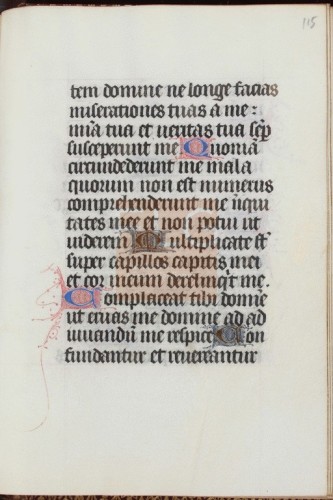 115
tem domine ne longe facias
miserationes tuas a me:
mia tua et veritas tua sep
susceperunt me Quoniā
circumdederunt me mala
quorum non est numerus
comprehenderunt me iniqui
tates mee et non potui ut
viderem Multiplicate st
super capillos capitis mei
et cor meum dereliqt me.
Complaceat tibi domine
ut eruas me domine ad ad
iuvandū me respice Con
fundantur et revereantur